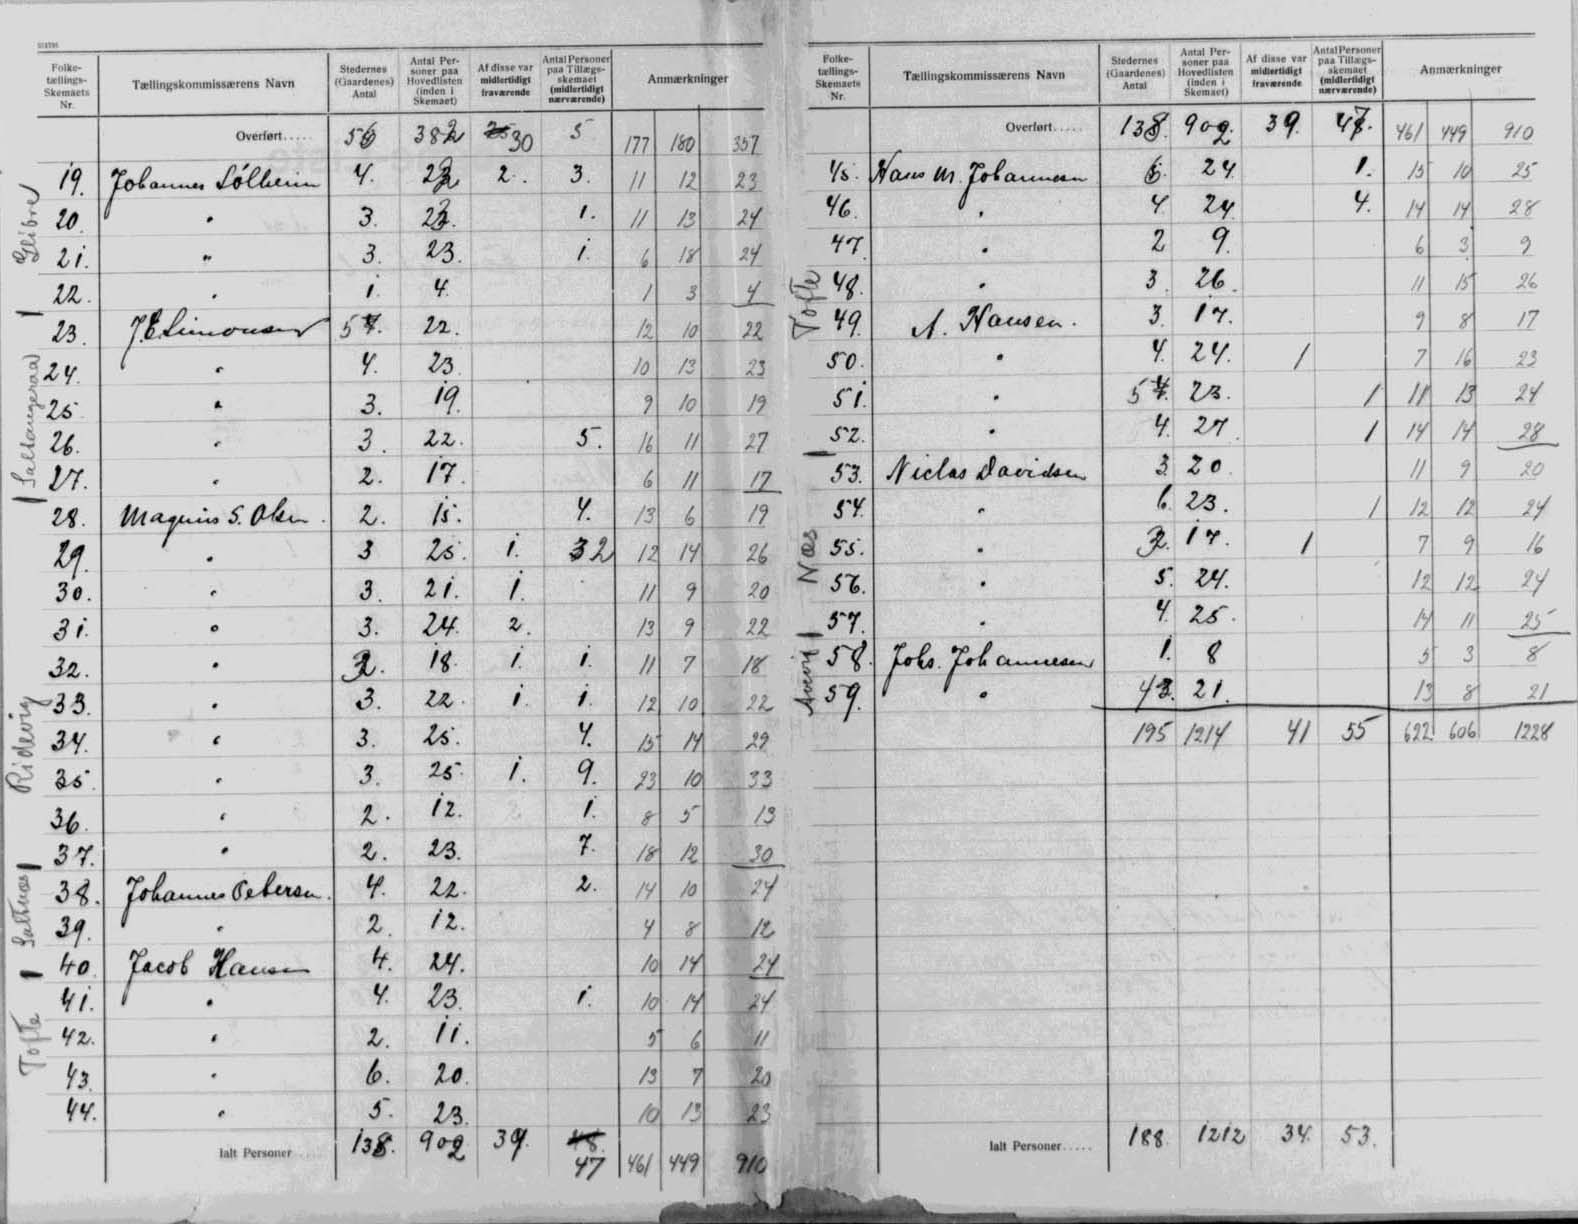 Folke-tællings-Skemaets Nr. Tællingskommissærens Navn Stedernes (Gaardenes) Antal Antal Personer paa Hovedlisten (inden i Skemaet) Af disse var midlertidigt fraværende Antal Personer paa Tillægs-skemaet (midlertidigt nærværende) Anmærkninger
Overført..... 56 382 30 5 177 180 357
Glibre
19. Johannes Sólheim 4. 22 2. 3. 11 12 23
20. " 3. 23. 1. 11 13 24
21. " 3. 23. 1. 6 18 24
22. " 1. 4. 1 3 4
Saltangeraa
23. J.E. Simonsen 5 22. 12 10 22
24. " 4. 23. 10 13 23
25 " 3. 19. 9 10 19
26. " 3. 22. 5. 16 11 27
27. " 2. 17. 6 11 17
Ridevig
28. Magnus S. Olsen. 2. 15. 4. 13 6 19
29. " 3 25. 1. 2 12 14 26
30. " 3. 21. 1. 11 9 20
31. " 3. 24. 2. 13 9 22
32. " 2. 18. 1. 1. 11 7 18
33. " 3. 22. 1. 1. 12 10 22
34. " 3. 25. 4. 15 14 29
35. " 3. 25. 1. 9. 23 10 33
36. " 2. 12. 1. 8 5 13
37. " 2. 23. 7. 18 12 30
Saltnæs
38. Johannes Petersen. 4. 22. 2. 14 10 24
39. " 2. 12. 4 8 12
40. Jacob Hansen 4. 24. 10 14 24
Tofte
41. " 4. 23. 1. 10 14 24
42. " 2. 11. 5 6 11
43. " 6. 20. 13 7 20
44. " 5. 23. 10 13 23
Ialt Personer..... 138. 902 39. 48. 47 461 449 910
Folke-tællings-Skemaets Nr. Tællingskommissærens Navn Stedernes (Gaardenes) Antal Antal Personer paa Hovedlisten (inden i Skemaet) Af disse var midlertidigt fraværende Antal Personer paa Tillægs-skemaet (midlertidigt nærværende) Anmærkninger
Overført..... 138. 902. 39. 47. 461 449 910
Tofte
45. Hans M. Johannesen 6. 24. 1. 15 10 25
46. " 4. 24. 4. 14 14 28
47. " 2 9. 6 3 9
48. " 3. 26. 11 15 26
49. A. Hansen. 3. 17. 9 8 17
50. " 4. 24. 1 7 16 23
51. " 5 23. 1 11 13 24
52. " 4. 27. 1 14 14 28
Næs
53. Niclas Davidsen 3. 20. 11 9 20
54. " 6. 23. 1 12 12 24
55. " 2. 17. 1 7 9 16
56. " 5. 24. 12 12 24
57. " 4. 25. 14 11 25
58. Johs. Johannesen 1. 8 5 3 8
59. " 4 21. 13 8 21
195 1214 41 55 622 606 1228
Ialt Personer..... 188. 1212 34. 53.